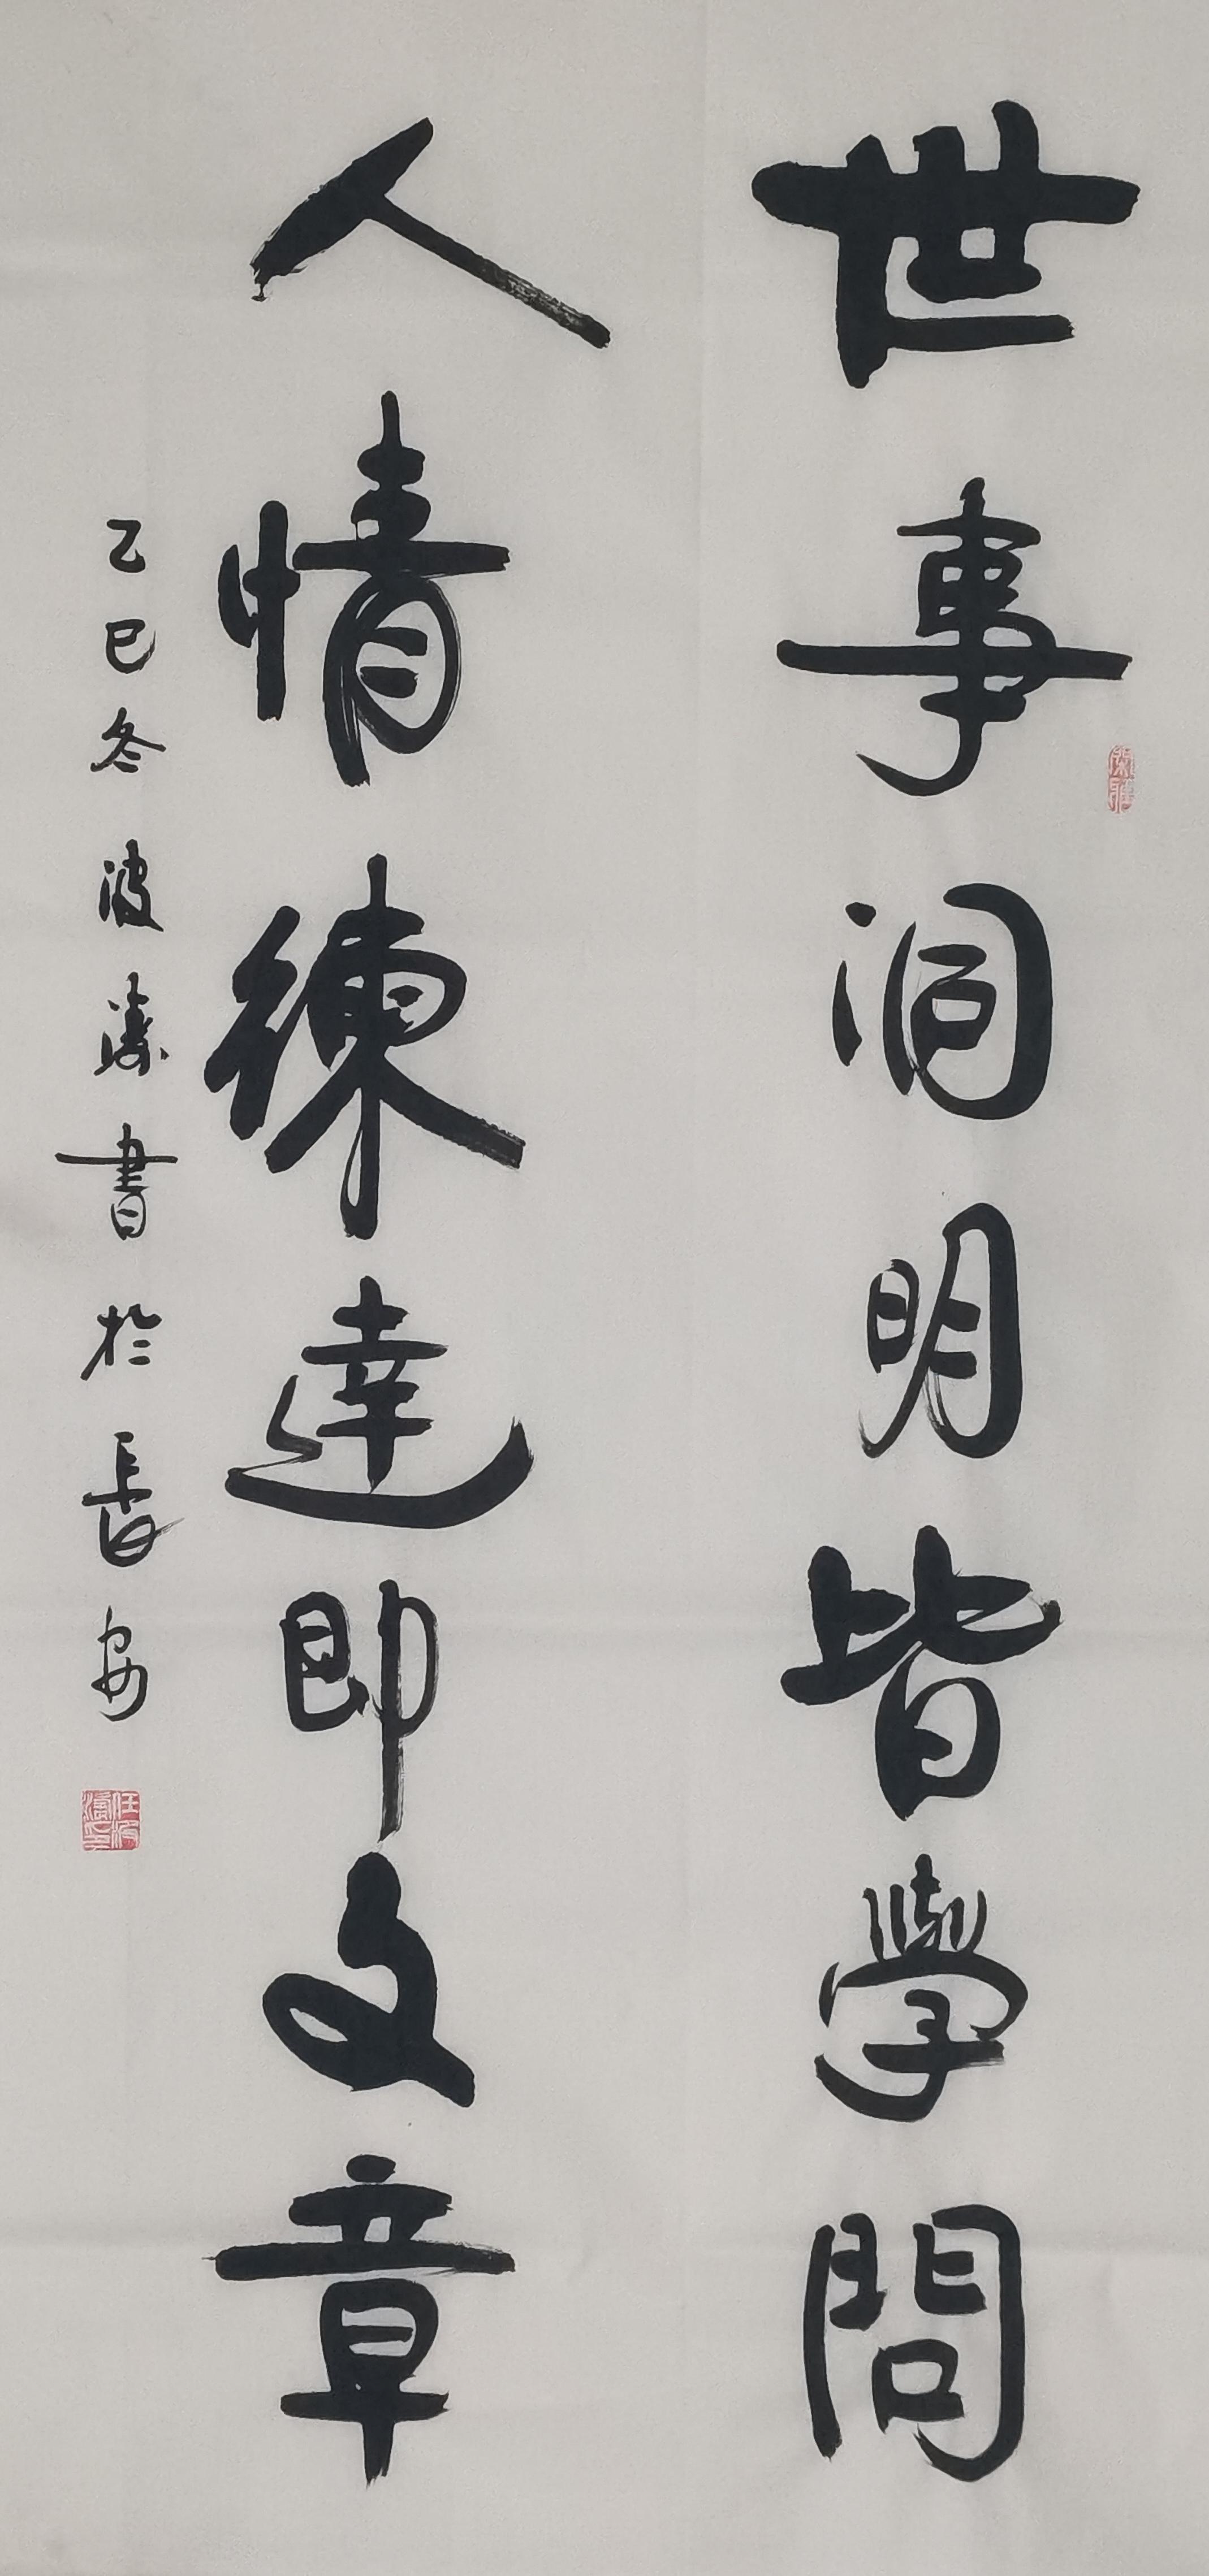 世事洞明皆學問
人情練達即文章
乙巳冬波濤書於長安